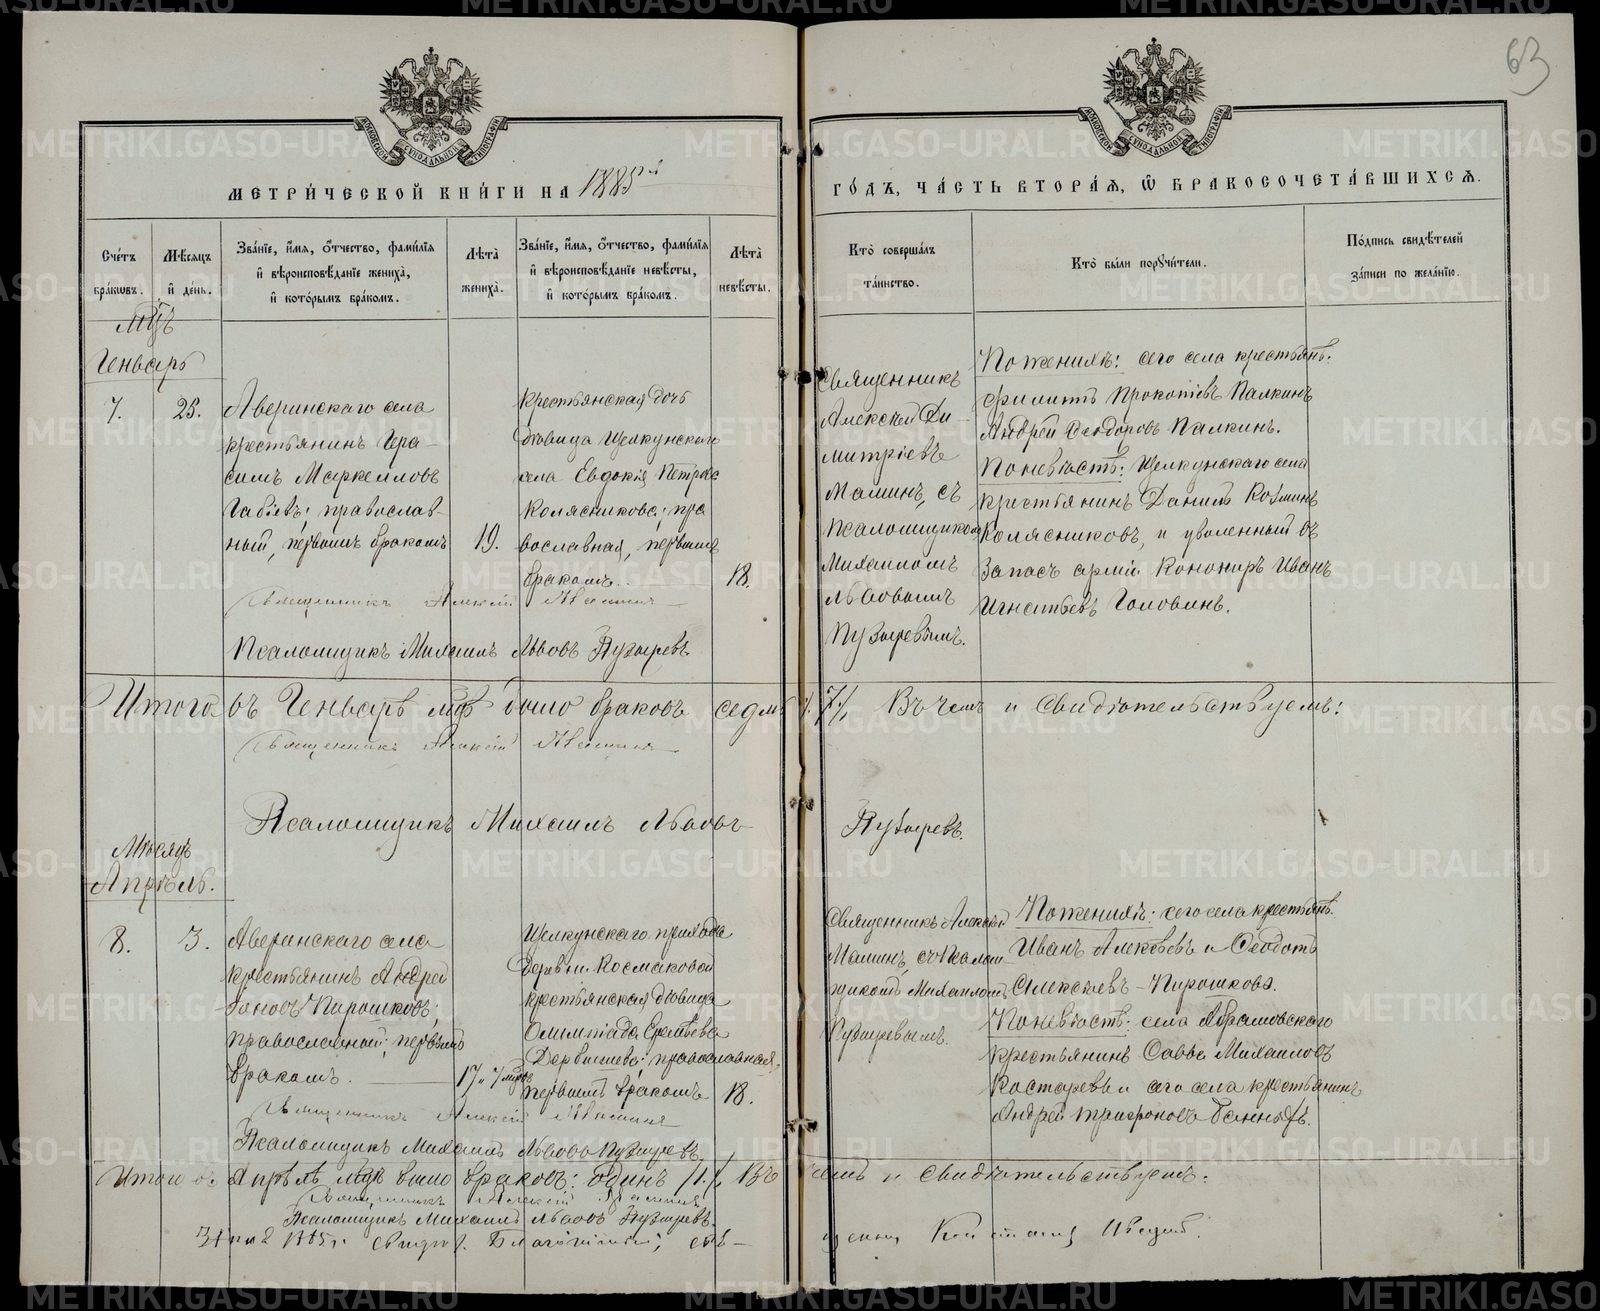 63
МЕТРИ́ЧЕСКОЙ КНИ́ГИ НА 1885й
ГО́ДЪ, ЧА́СТЬ ВТОРА́Я, Ѡ҆ БРАКОСОЧЕТА́ВШИХСЯ.
Сче́тъ бра́кѡвъ.
Мѣ́сяцъ и҆ де́нь.
Зва́нїе, и҆́мя, ѻ҆́тчество, фами́лїя
и҆ вѣроисповѣ́данїе жениха̀,
и҆ кото́рымъ бра́комъ.
Лѣта̀ жениха̀.
Зва́нїе, и҆́мя, ѻ҆́тчество, фами́лїя
и҆ вѣроисповѣ́данїе невѣ́сты,
и҆ кото́рымъ бра́комъ.
Лѣта̀ невѣ́сты.
Кто̀ соверша́лъ
та́инство.
Кто̀ бы́ли порꙋчи́тели.
По́дпись свидѣ́телей
за́писи по жела́нїю.
Мцъ
Генварь
7.
25.
Аверинскаго села
крестьянинъ Гера-
симъ Маркелловъ
православ-
ный, первымъ бракомъ
19.
крестьянская дочь
девица Щелкунскаго
села Евдокія Петрова
Колясникова; пра
вославная, первымъ
бракомъ.
18.
Священникъ
Алексей Ди-
митріевъ
Малинъ, съ
Псаломщикомъ
Михаиломъ
Львовымъ
Пузыревымъ.
По женихѣ: сего села крестьяне.
Филиппъ Прокопіевъ Палкинъ
Андрей Ѳеодоровъ Палкинъ.
По невѣстѣ: Щелкунскаго села
крестьянинъ Даниилъ Козминъ
Колясниковъ, и уволенный въ
Запасъ арміи Конониръ Иванъ
Игнатьевъ Головинъ.
Священникъ Алексій Малинъ
Псаломщикъ Михаилъ Львовъ Пузыревъ
Итого въ Генварѣ мцѣ было браковъ седмь /7./ Въ чемъ и свидѣтельствуемъ:
Священникъ Алексій Малинъ
Псаломщикъ Михаилъ Львовъ Пузыревъ.
Мѣсяцъ
Апрѣль.
8.
3.
Аверинскаго села
крестьянинъ Андрей
Пирошковъ;
православный; первымъ
бракомъ.
17 и 7 мцовъ
Щелкунскаго прихода
Деревни Космаковой
крестьянская девица
Олимпіада
православная,
первымъ бракомъ
18.
Священникъ Алексей
Малинъ, съ Псалом-
щикомъ Михаиломъ
Пузыревымъ.
По женихѣ: сего села крестьяне.
Иванъ Алексѣевъ и Ѳеодотъ
Алексѣевъ Пирошкова.
По невѣстѣ: села Абрамовскаго
крестьянинъ Савва Михаиловъ
Костаревъ и сего села крестьянинъ
Андрей Трифоновъ
Священникъ Алексій Малинъ
Псаломщикъ Михаилъ Львовъ Пузыревъ.
Итого въ Апрѣлѣ мцѣ было браковъ: одинъ /1./ Въ чемъ и свидѣтельствуемъ:
Священникъ Алексій Малинъ
Псаломщикъ Михаилъ Львовъ Пузыревъ.
1885 г.